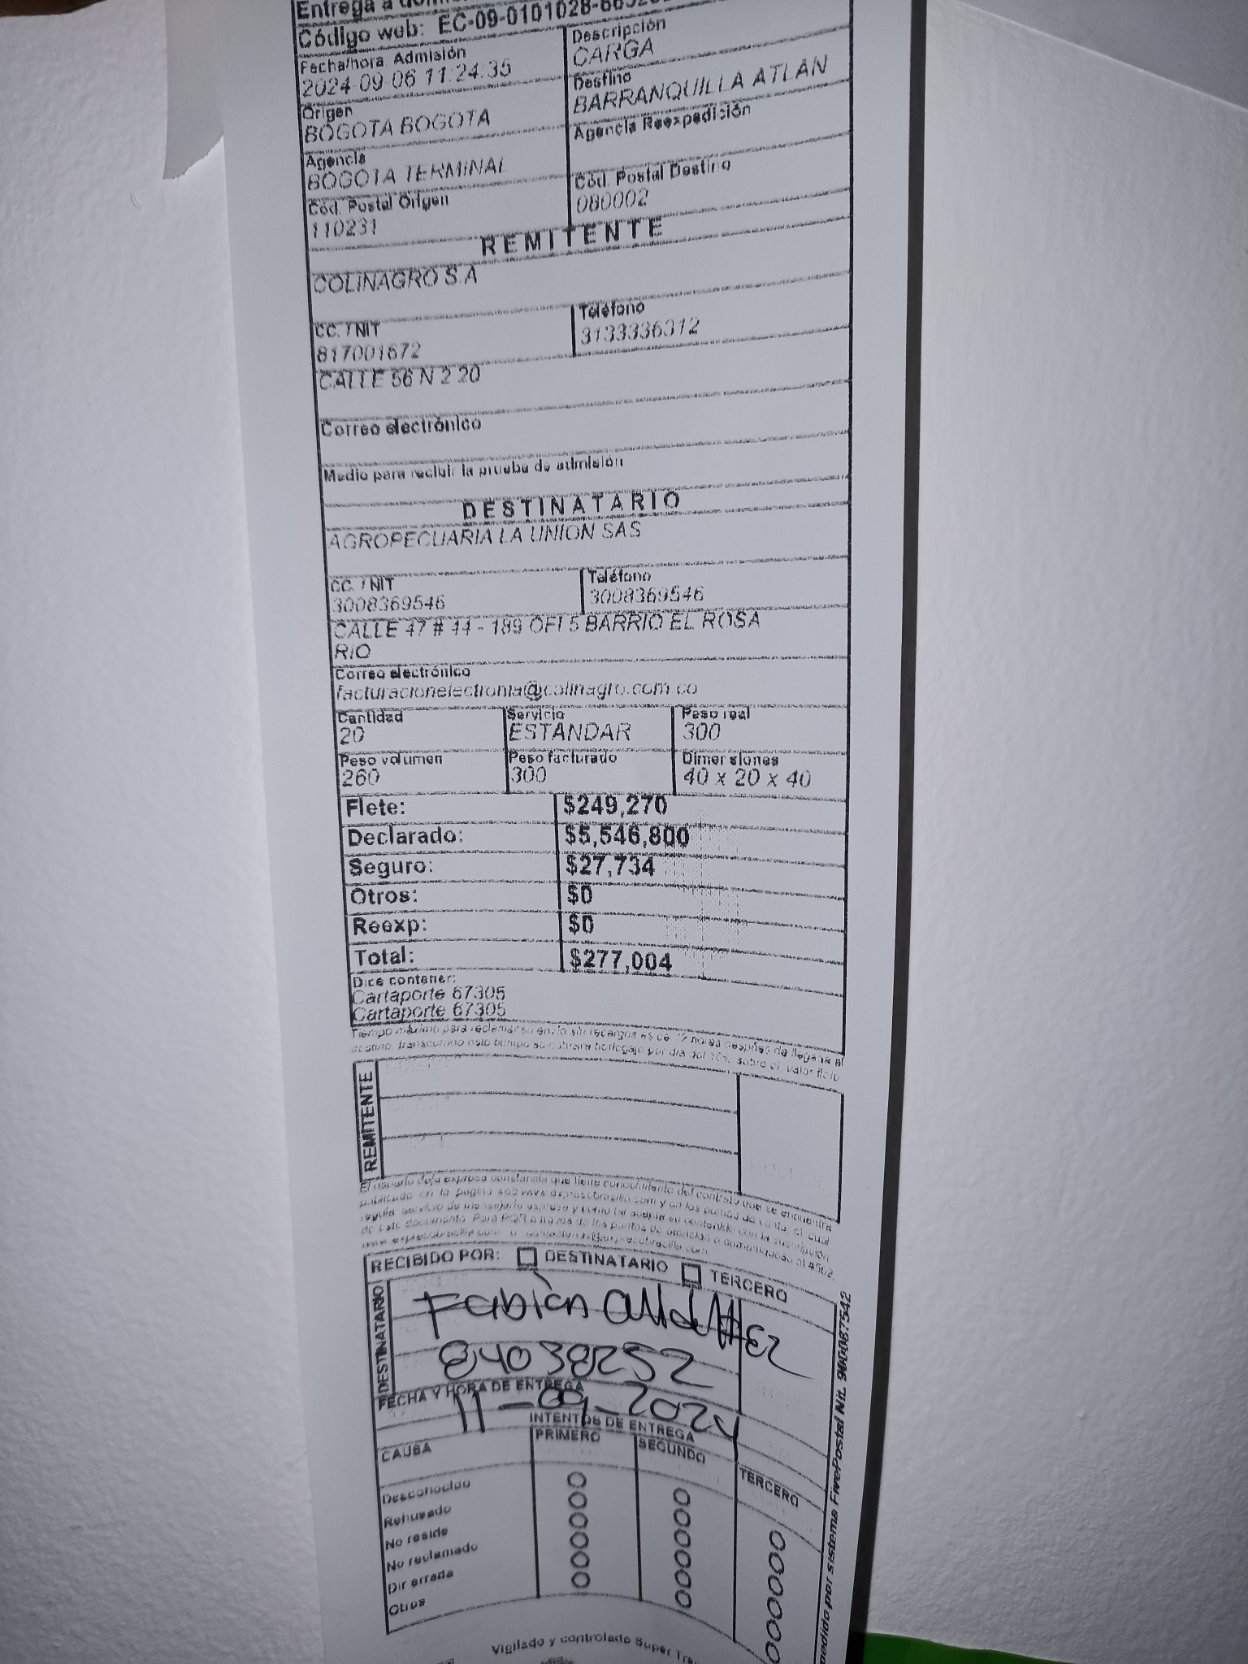 Entrega a
Código web: EC-09-0101028-
Fecha/hora Admisión
2024-09-06 11:24:35
Descripción
CARGA
Origen
BOGOTA BOGOTA
Destino
BARRANQUILLA ATLAN
Agencia
BOGOTA TERMINAL
Agencia Reexpedición
Cód. Postal Origen
110231
Cód. Postal Destino
080002
REMITENTE
COLINAGRO S.A
CC. / NIT
817001672
Teléfono
3133336312
CALLE 56 N 2 20
Correo electrónico
Medio para recibir la prueba de admisión
DESTINATARIO
AGROPECUARIA LA UNION SAS
CC. / NIT
3008369546
Teléfono
3008369546
CALLE 47 # 44 - 189 OFI 5 BARRIO EL ROSA
RIO
Correo electrónico
facturacionelectronia@colinagro.com.co
Cantidad
20
Servicio
ESTANDAR
Peso real
300
Peso volumen
260
Peso facturado
300
Dimensiones
40 x 20 x 40
Flete: $249,270
Declarado: $5,546,800
Seguro: $27,734
Otros: $0
Reexp: $0
Total: $277,004
Dice contener:
Cartaporte 67305
Cartaporte 67305
Tiempo máximo para reclamar su envío sin recargos es de 72 horas después de llegar al
destino, transcurrido este tiempo se cobrara bodegaje por día del 10% sobre el valor flete
REMITENTE
El usuario deja expresa constancia que tiene conocimiento del contrato que se encuentra
publicado en la pagina web www.expresobrasilia.com y en los puntos de venta, el cual
regula servicio de mensajería expresa y
de este documento. Para PQR a través de los puntos de atención
RECIBIDO POR: DESTINATARIO TERCERO
DESTINATARIO
Fabián
84038252
FECHA Y HORA DE ENTREGA
11-09-2024
INTENTOS DE ENTREGA
CAUSA PRIMERO SEGUNDO TERCERO
Desconocido
Rehusado
No reside
No reclamado
Dir errada
Otros
Vigilado y controlado Super
por sistema FivePostal Nit. 900087542